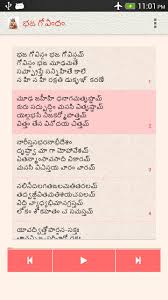 11:01 PM
భజ గోవిందం
భజ గోవిందం భజ గోవిందం
గోవిందం భజ మూఢమతే
సంప్రాప్తే సన్నిహితే కాలే
న హి న హి రక్షతి డుకృఞ్ కరణే
1
మూఢ జహీహి ధనాగమతృష్ణామ్
కురు సద్బుద్ధిం మనసి వితృష్ణామ్
యల్లభసే నిజకర్మోపాత్తమ్
విత్తం తేన వినోదయ చిత్తమ్
2
నారీస్తనభరనాభీదేశం
దృష్ట్వా మా గా మోహావేశమ్
ఏతన్మాంసావసాది వికారం
మనసి విచింతయ వారం వారమ్
3
నలినీదలగతజలమతితరలమ్
తద్వజ్జీవితమతిశయచపలమ్
విద్ధి వ్యాధ్యభిమానగ్రస్తం
లోకం శోకహతం చ సమస్తమ్
4
యావద్విత్తోపార్జన-సక్తః